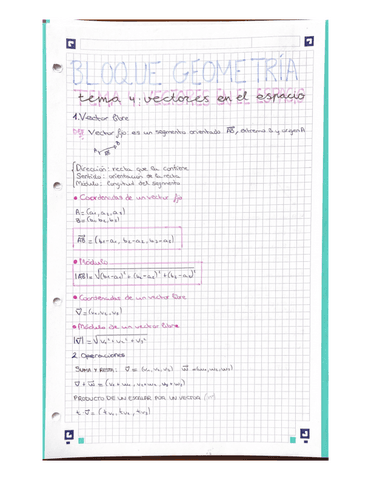 BLOQUE GEOMETRÍA
tema 4: vectores en el espacio
1. Vector libre
Vector fijo: es un segmento orientado AB, extremo B y origen A
A B
Dirección: recta que la contiene
Sentido: orientación de la recta
Módulo: longitud del segmento
• Coordenadas de un vector fijo
A = (a₁, a₂, a₃)
B = (b₁, b₂, b₃)
AB = (b₁-a₁, b₂-a₂, b₃-a₃)
• Módulo
|AB| = √(b₁-a₁)² + (b₂-a₂)² + (b₃-a₃)²
• Coordenadas de un vector libre
v = (v₁, v₂, v₃)
• Módulo de un vector libre
|v| = √v₁² + v₂² + v₃²
2. Operaciones
SUMA Y RESTA:
PRODUCTO DE UN ESCALAR POR UN VECTOR
t · v = (t v₁, t v₂, t v₃)